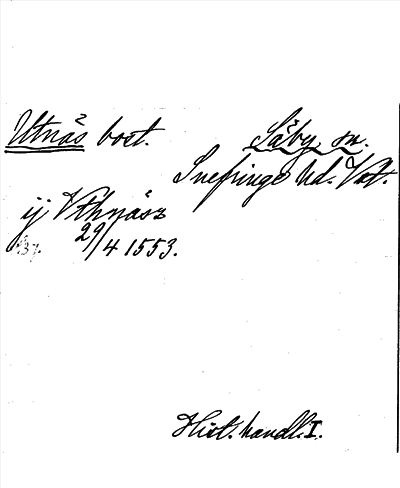 Utnäs bost. Säby sn.
Snefringe hd. Vst.
ij Vthnääs
29/4 1553.
Hist. handl. I.